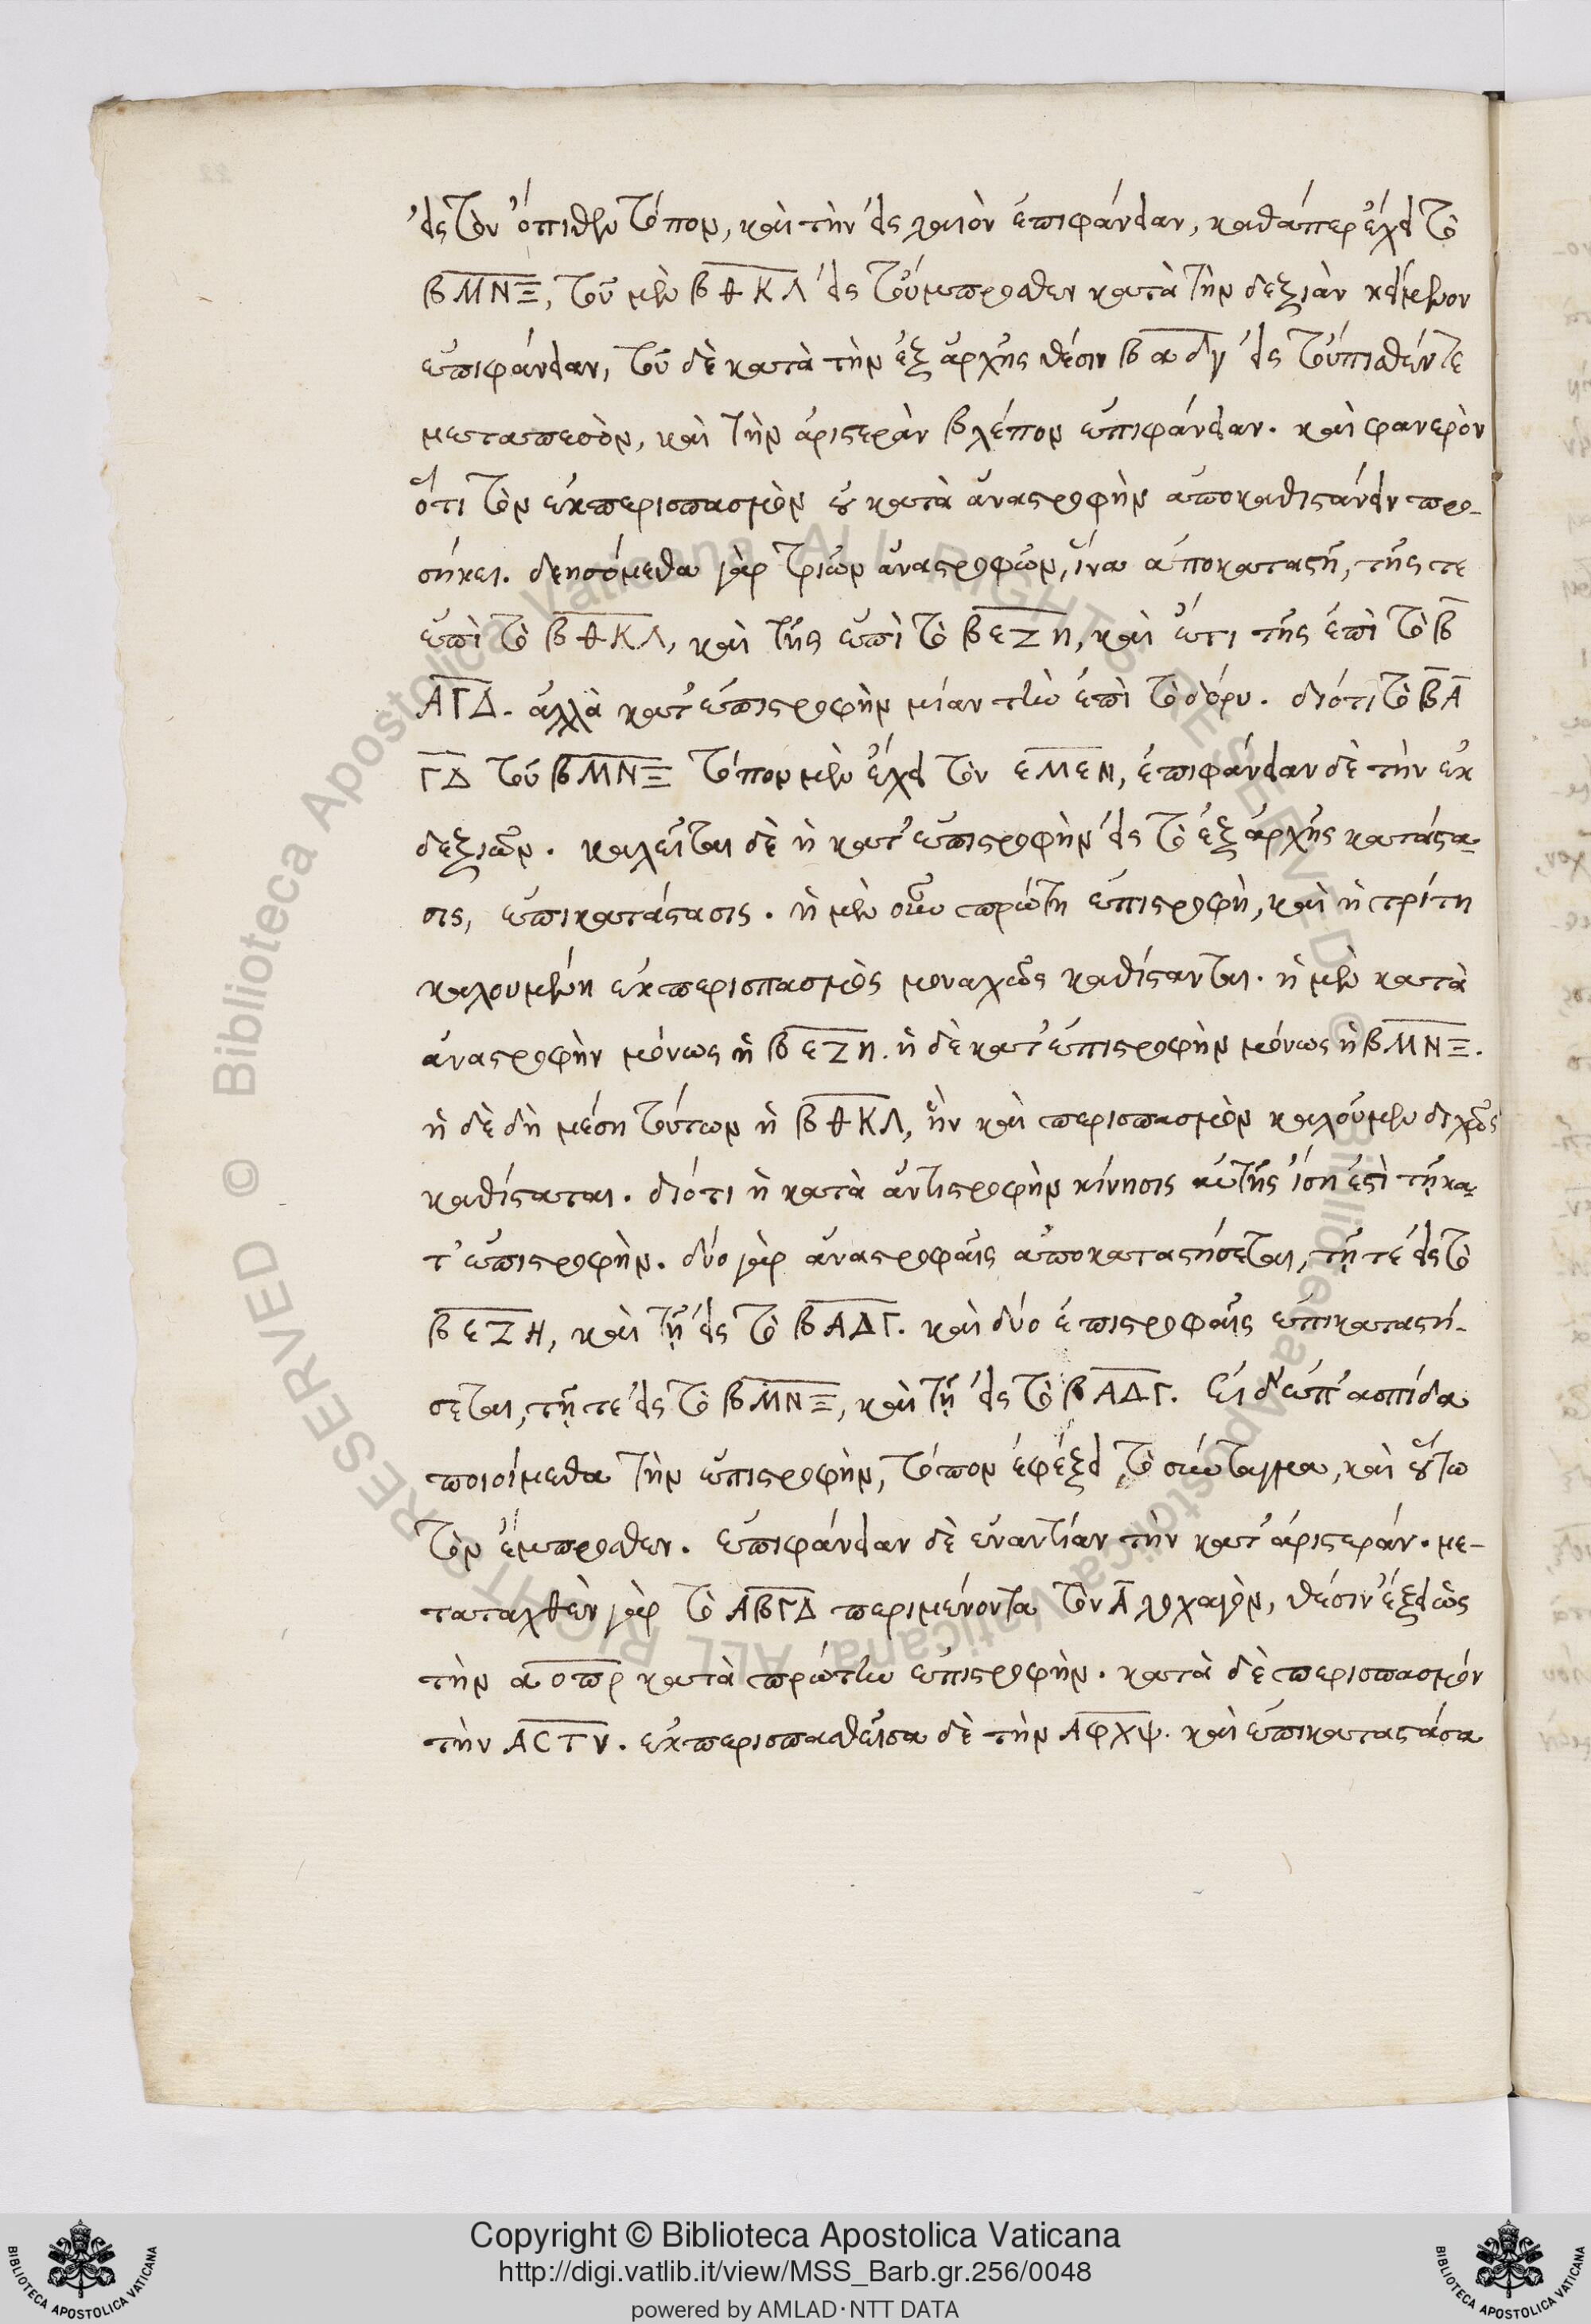 εἰς τὸν ὄπισθεν τόπον, καὶ τὴν εἰς λαιὸν ἐπιφάνειαν, καθάπερ ἔχει τὸ
ΒΜΝΞ, τοῦ μὲν ΒΘΚΛ εἰς τοὔμπροσθεν κατὰ τὴν δεξιὰν κείμενον
ἐπιφάνειαν, τοῦ δὲ κατὰ τὴν ἐξ ἀρχῆς θέσιν βαδγ εἰς τοὔπισθέν τε
μεταπεσὸν, καὶ τὴν ἀριστερὰν βλέπον ἐπιφάνειαν. καὶ φανερὸν
ὅτι τὸν ἐκπερισπασμὸν οὐ κατὰ ἀναστροφὴν ἀποκαθιστάνειν προ-
σήκει. δεησόμεθα γὰρ τριῶν ἀναστροφῶν, ἵνα ἀποκαταστῆ, τῆς τε
ἐπὶ τὸ ΒΘΚΛ, καὶ τῆς ἐπὶ τὸ ΒΕΖΗ, καὶ ἔτι τῆς ἐπὶ τὸ Β
ΑΓΔ. ἀλλὰ κατ' ἐπιστροφὴν μίαν τὴν ἐπὶ τὸ δόρυ. διότι τὸ ΒΑ
ΓΔ τοῦ ΒΜΝΞ τόπον μὲν ἔχει τὸν ΕΜΕΝ, ἐπιφάνειαν δὲ τὴν ἐκ
δεξιῶν. καλεῖται δὲ ἡ κατ' ἐπιστροφὴν εἰς τὸ ἐξ ἀρχῆς κατάστα-
σις, ἐπικατάστασις. ἡ μὲν οὖν πρώτη ἐπιστροφὴ, καὶ ἡ τρίτη
καλουμένη ἐκπερισπασμὸς μοναχῶς καθίστανται. ἡ μὲν κατὰ
ἀναστροφὴν μόνως ἡ ΒΕΖΗ. ἡ δὲ κατ' ἐπιστροφὴν μόνως ἡ ΒΜΝΞ.
ἡ δὲ δὴ μέση τούτων ἡ ΒΘΚΛ, ἣν καὶ περισπασμὸν καλοῦμεν διχῶς
καθίσταται. διότι ἡ κατὰ ἀντιστροφὴν κίνησις αὐτῆς ἴση ἐστὶ τῇ κα-
τ' ἐπιστροφὴν. δύο γὰρ ἀναστροφαῖς ἀποκαταστήσεται, τῇ τε εἰς τὸ
ΒΕΖΗ, καὶ τῇ εἰς τὸ ΒΑΔΓ. καὶ δύο ἐπιστροφαῖς ἐπικαταστή-
σεται, τῇ τε εἰς τὸ ΒΜΝΞ, καὶ τῇ εἰς τὸ ΒΑΔΓ. Εἰ δ' ἐπ' ἀσπίδα
ποιοίμεθα τὴν ἐπιστροφὴν, τόπον ἐφέξει τὸ σύνταγμα, καὶ οὕτω
τὸν ἔμπροσθεν. ἐπιφάνειαν δὲ ἐναντίαν τὴν κατ' ἀριστεράν. με-
ταταχθὲν γὰρ τὸ ΑΒΓΔ περιμένοντα τὸν Α λοχαγὸν, θέσιν ἕξει ὡς
τὴν αοπρ κατὰ πρώτην ἐπιστροφὴν. κατὰ δὲ περισπασμόν
τὴν ΑΣΤΥ. ἐκπερισπασθεῖσα δὲ τὴν ΑΦΧΨ. καὶ ἐπικαταστᾶσα
Copyright © Biblioteca Apostolica Vaticana
http://digi.vatlib.it/view/MSS_Barb.gr.256/0048
powered by AMLAD·NTT DATA